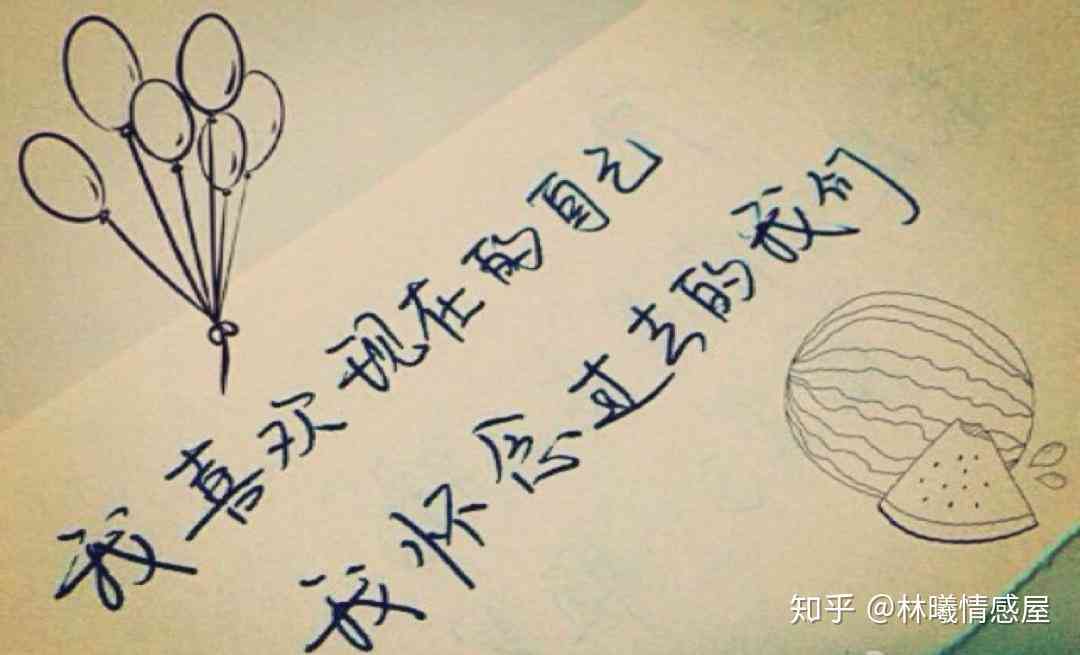 我喜欢现在的自己
我怀念过去的我们
知乎 @林曦情感屋